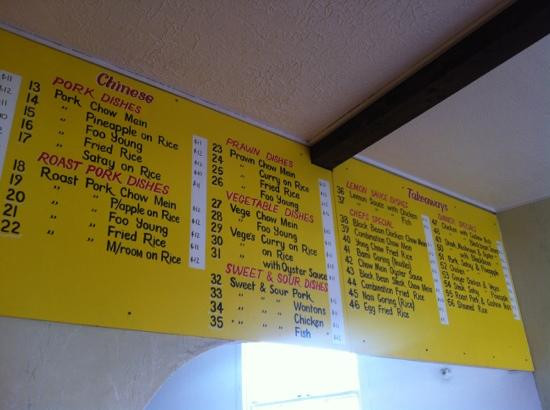 Chinese
PORK DISHES
13 Pork Chow Mein
14 " Pineapple on Rice
15 " Foo Young
16 " Fried Rice
17 " Satay on Rice
ROAST PORK DISHES
18 Roast Pork Chow Mein
19 " " P/apple on Rice
20 " " Foo Young
21 " " Fried Rice
22 " " M/room on Rice
PRAWN DISHES
23 Prawn Chow Mein
24 " Curry on Rice
25 " Fried Rice
26 " Foo Young
VEGETABLE DISHES
27 Vege Chow Mein
28 " Foo Young
29 Vege's Curry on Rice
30 " on Rice
31 " with Oyster Sauce
SWEET & SOUR DISHES
32 Sweet & Sour Pork
33 " " " Wontons
34 " " " Chicken
35 " " " Fish
Takeaways
LEMON SAUCE DISHES
36 Lemon Sauce with Chicken
37 " " " Fish
CHEFS SPECIAL
38 Black Bean Chicken Chow Mein
39 Combination Chow Mein
40 Yong Chow Fried Rice
41 Bami Goring (Noodle)
42 Chow Mein Oyster Sauce
43 Black Bean Steak Chow Mein
44 Combination Fried Rice
45 Nasi Goring (Rice)
46 Egg Fried Rice
DINNER SPECIALS
52 Chicken
56 Steamed Rice